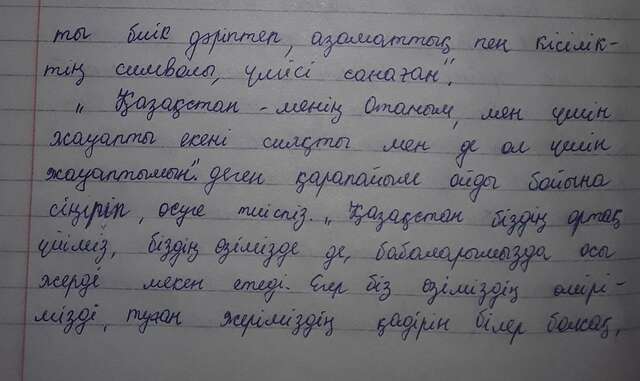 ты биік дәріптеп, азаматтық пен кісілік-
тің символы, үлгісі санаған".
„ Қазақстан - менің Отаным, мен үшін
жауапты екені сияқты мен де ол үшін
жауаптымын". деген қарапайым ойды бойына
сіңіріп, өсуге тиіспіз. „ Қазақстан біздің ортақ
үйіміз, біздің өзімізде де, бабаларымызда осы
жерді мекен етеді. Егер біз өзіміздің өмірі-
мізді, туған жеріміздің қадірін білер болсақ,